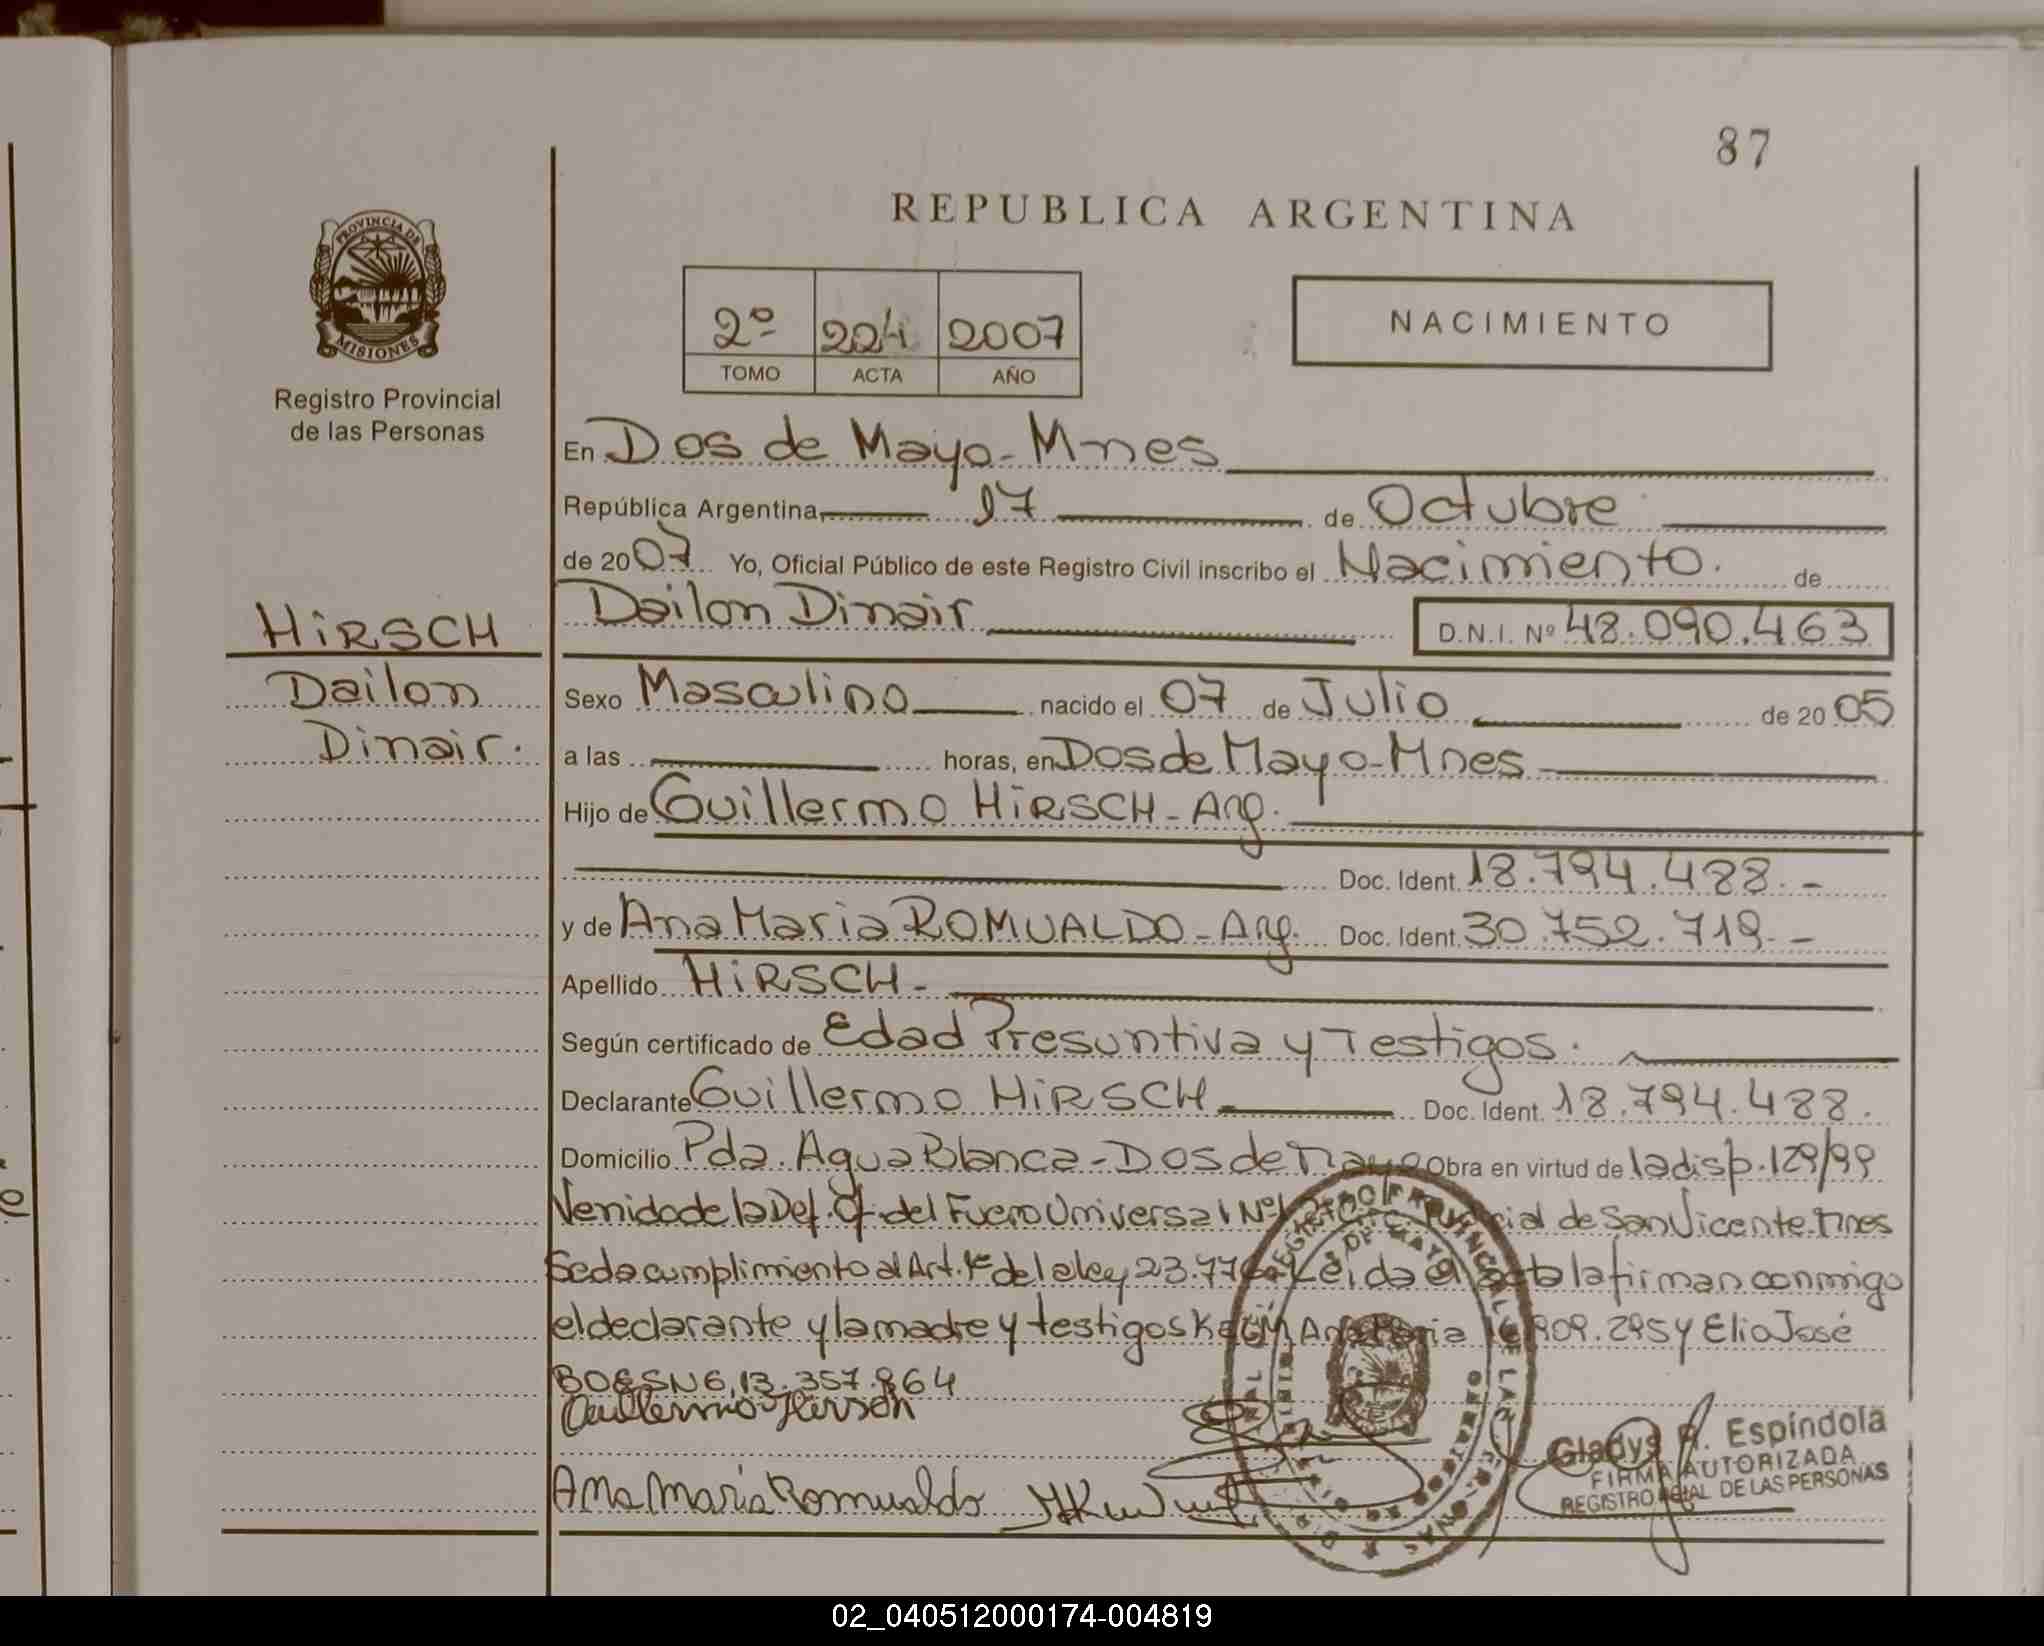 87
REPUBLICA ARGENTINA
PROVINCIA DE
MISIONES
Registro Provincial
de las Personas
2º 224 2007
TOMO ACTA AÑO
NACIMIENTO
En Dos de Mayo - Mnes
República Argentina, 17 de Octubre
de 2007 Yo, Oficial Público de este Registro Civil inscribo el Nacimiento. de
HiRSCH
Dailon
Dinair.
Dailon Dinair D.N.I. Nº 48.090.463
Sexo Masculino nacido el 07 de Julio de 2005
a las horas, en Dos de Mayo - Mnes
Hijo de Guillermo HiRSCH - Arg.
Doc. Ident. 18.794.488. -
y de Ana Maria ROMUALDO - Arg. Doc. Ident. 30.752.718. -
Apellido HiRSCH -
Según certificado de Edad Presuntiva y Testigos.
Declarante Guillermo HiRSCH Doc. Ident. 18.794.488.
Domicilio Pda. Agua Blanca - Dos de Mayo Obra en virtud de la disp. 129/99
Venido de la Def. Of. del Fuero Universal Nº1 de San Vicente. Mnes
Se da cumplimiento al Art. 1º de la ley 23.776. Leida el acta la firman conmigo
el declarante y la madre y testigos Ana Maria 909.295 y Elio José
13.357.864
Guillermo Hirsch
Ana Maria Romualdo
Gladys A. Espíndola
FIRMA AUTORIZADA
REGISTRO PCIAL DE LAS PERSONAS
02_040512000174-004819